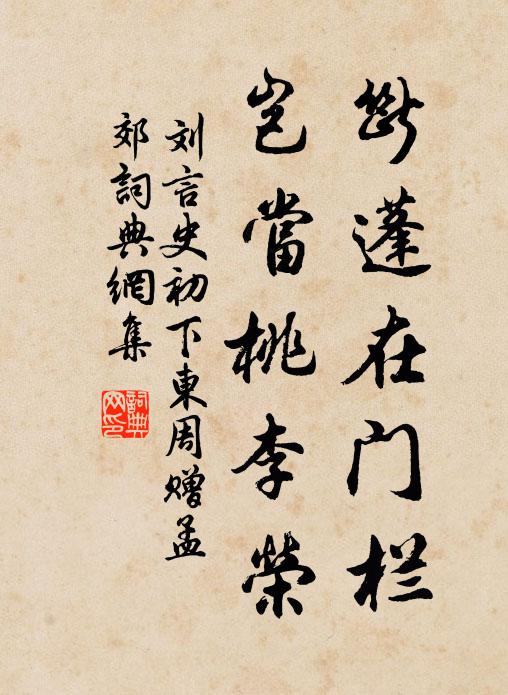 断蓬在门栏
岂當桃李榮
刘言史初下東周赠孟
郊詞典網集
詞典网印